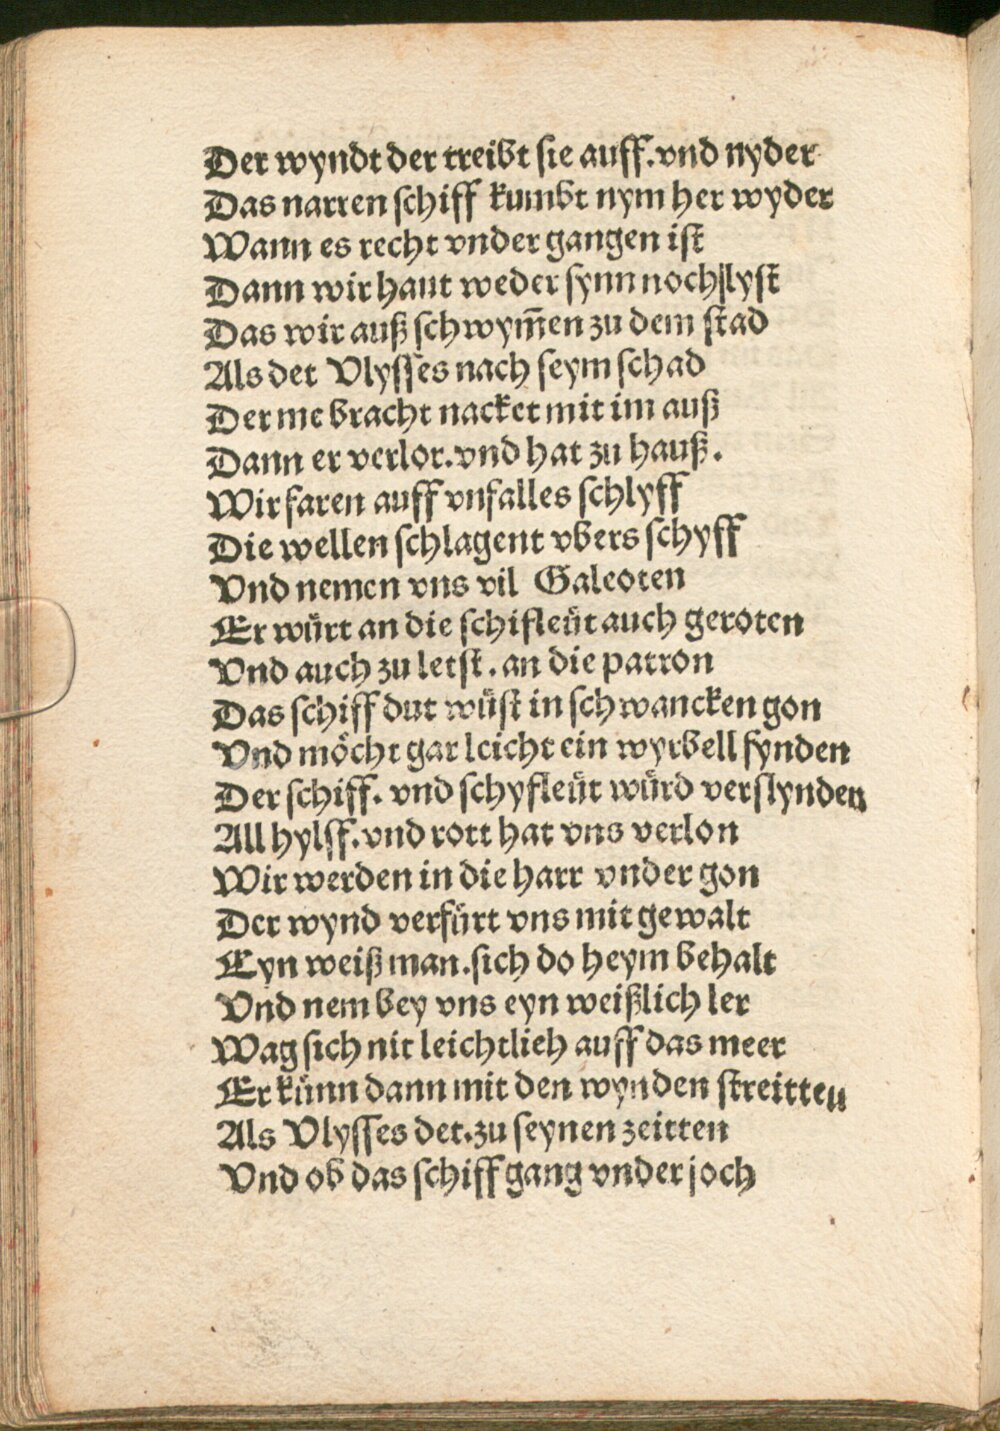 Der wyndt der treibt sie auff. vnd nyder
Das narren schiff kumbt nym her wyder
Wann es recht vnder gangen ist
Dann wir haut weder synn noch lyst
Das wir auß schwym̃en zu dem stad
Als det Vlysses nach seym schad
Der me bracht nacket mit im auß
Dann er verlor. vnd hat zu hauß.
Wir faren auff vnfalles schlyff
Die wellen schlagent vbers schyff
Vnd nemen vns vil Galeoten
Er würt an die schifleüt auch geroten
Vnd auch zu letst. an die patron
Das schiff dut wüst in schwancken gon
Vnd möcht gar leicht ein wyrbell fynden
Der schiff. vnd schyfleüt würd verslynden
All hylff. vnd rott hat vns verlon
Wir werden in die harr vnder gon
Der wynd verfürt vns mit gewalt
Eyn weiß man. sich do heym behalt
Vnd nem bey vns eyn weißlich ler
Wag sich nit leichtlich auff das meer
Er künn dann mit den wynden streitten
Als Vlysses det. zu seynen zeitten
Vnd ob das schiff gang vnder joch